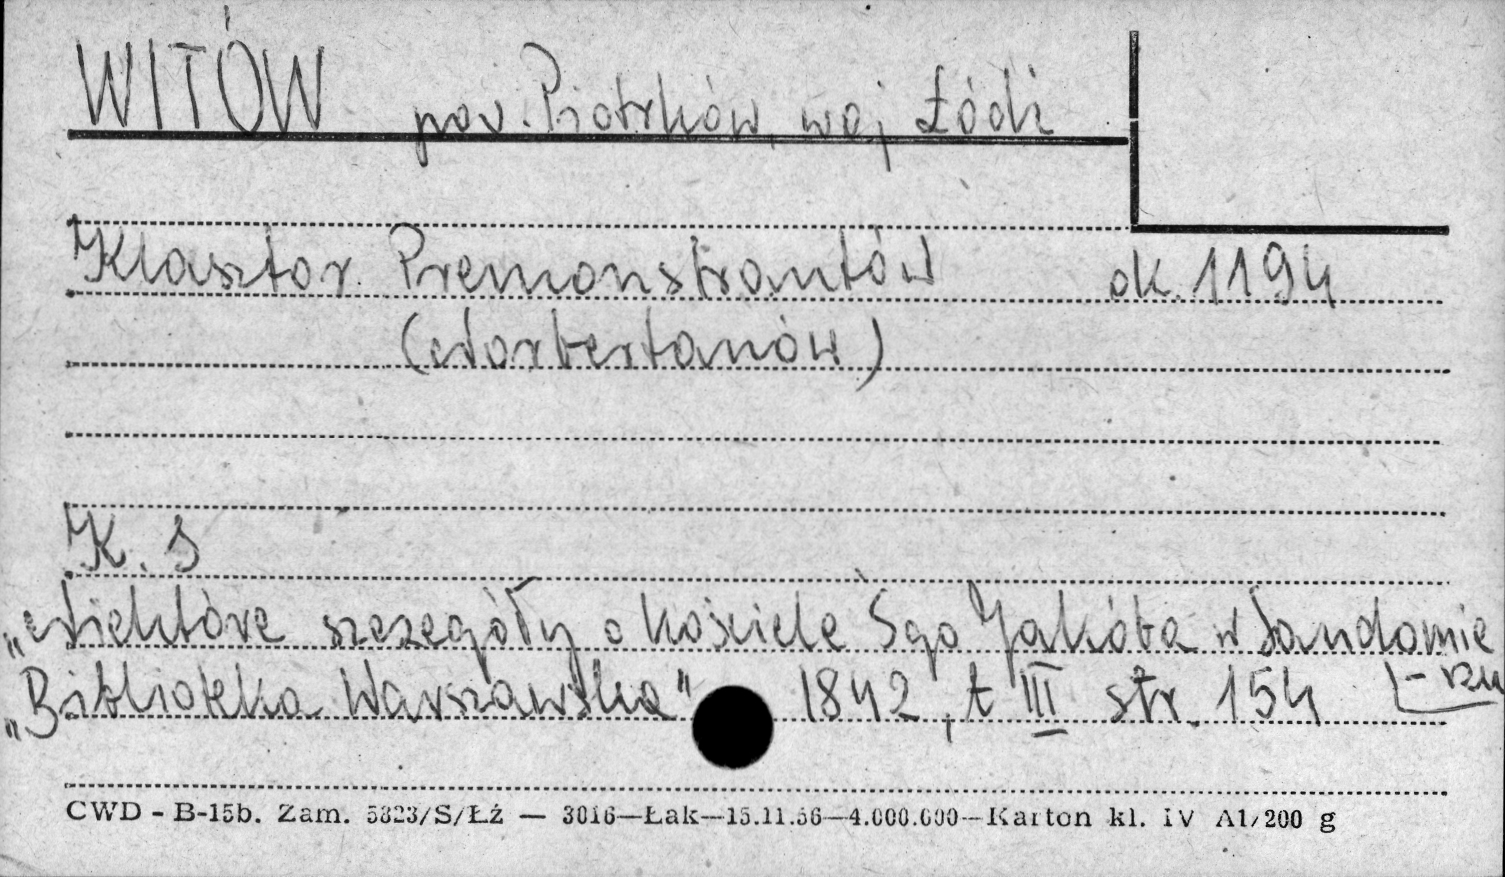 WITÓW pow. Piotrków, woj Łódź
Klasztor Premonstrantów ok. 1194
(Norbertanów)
K. S
„Niektóre szczegóły o kościele Sgo Jakóba w Sandomie
-rzu
„Biblioteka Warszawska" 1842, t III str. 154
CWD - B-15b. Zam. 5323/S/Łź — 3016—Łak—15.11.56—4.000.000—Karton kl. IV A1/200 g